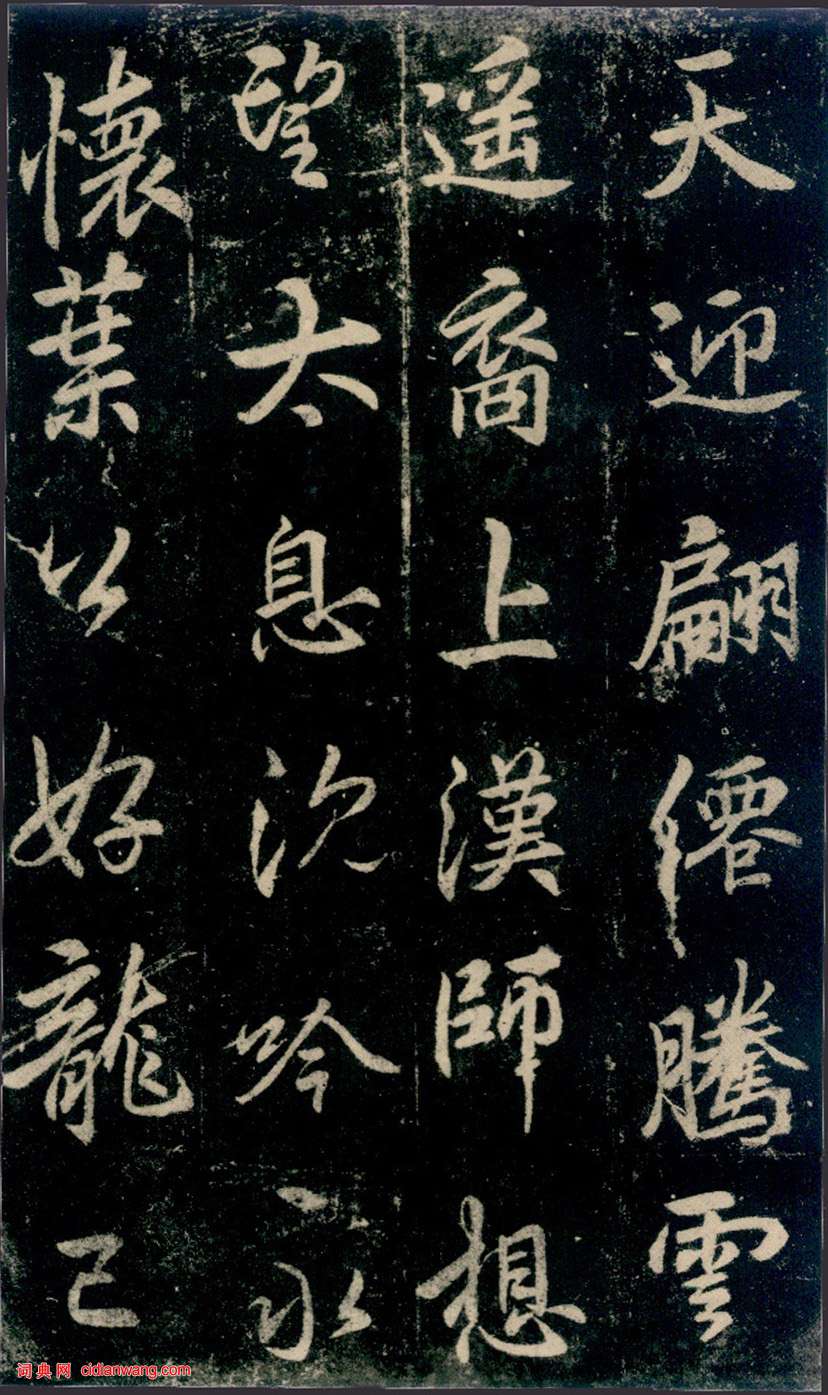 天迎翩僊騰雲
遥裔上漢師想
望太息沉吟永
懷葉以好龍已
词典网 cidianwang.com